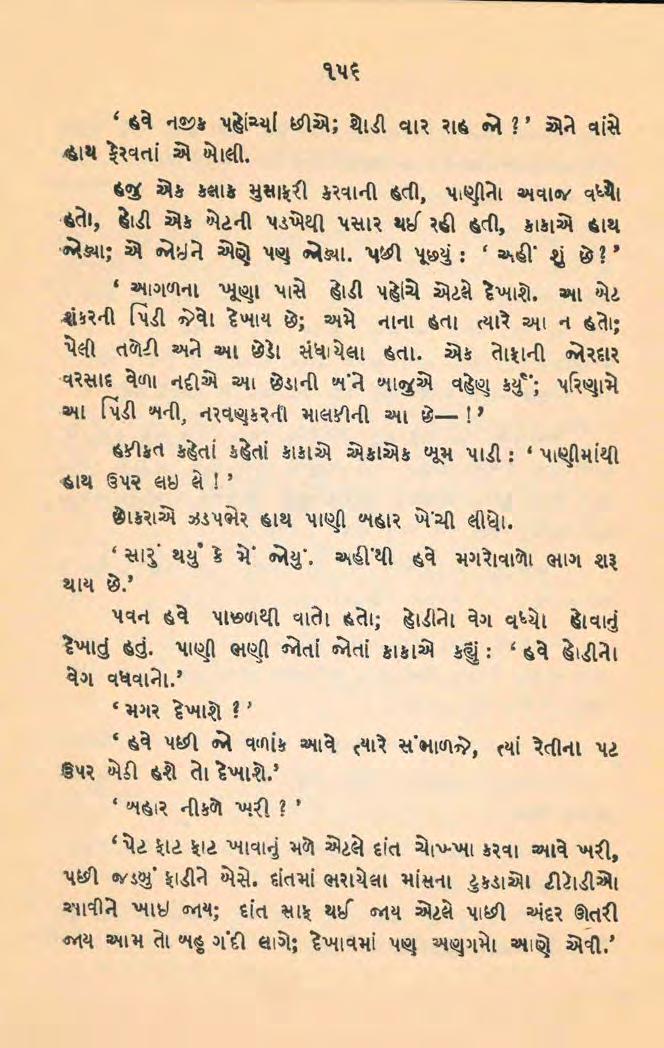 ૧૫૬
‘ હવે નજીક પહોંચ્યાં છીએ; થોડી વાર રાહ જો ?’ એને વાંસે
હાથ ફેરવતાં એ બોલી.
હજુ એક કલાક મુસાફરી કરવાની હતી, પાણીનો અવાજ વધ્યો
હતો, હોડી એક બેટની પડખેથી પસાર થઈ રહી હતી, કાકાએ હાથ
જોડ્યા; એ જોઇને એણે પણ જોડ્યા. પછી પૂછયું : ‘ અહીં શું છે?’
‘ આગળના ખૂણા પાસે હોડી પહોંચે એટલે દેખાશે. આ બેટ
શંકરની પિંડી જેવો દેખાય છે; અમે નાના હતા ત્યારે આ ન હતો;
પેલી તળેટી અને આ છેડો સંધાયેલા હતા. એક તોફાની જોરદાર
વરસાદ વેળા નદીએ આ છેડાની બંને બાજુએ વહેણ કર્યું; પરિણામે
આ પિંડી બની, નરવણકરની માલકીની આ છે— !’
હકીકત કહેતાં કહેતાં કાકાએ એકાએક બૂમ પાડી : ‘ પાણીમાંથી
હાથ ઉપર લઇ લે ! ’
છોકરાએ ઝડપભેર હાથ પાણી બહાર ખેંચી લીધો.
‘ સારું થયું કે મેં જોયું. અહીંથી હવે મગરોવાળો ભાગ શરૂ
થાય છે.’
પવન હવે પાછળથી વાતો હતો; હોડીનો વેગ વધ્યો હોવાનું
દેખાતું હતું. પાણી ભણી જોતાં જોતાં કાકાએ કહ્યું : ‘ હવે હોડીનો
વેગ વધવાનો.’
‘ મગર દેખાશે ? ’
‘ હવે પછી જો વળાંક આવે ત્યારે સંભાળજે, ત્યાં રેતીના પટ
ઉપર બેઠી હશે તો દેખાશે.’
‘ બહાર નીકળે ખરી ? ’
‘ પેટ ફાટ ફાટ ખાવાનું મળે એટલે દાંત ચોખ્ખા કરવા આવે ખરી,
પછી જડબું ફાડીને બેસે. દાંતમાં ભરાયેલા માંસના ટુકડાઓ ટીટોડીઓ
આવીને ખાઇ જાય; દાંત સાફ થઈ જાય એટલે પાછી અંદર ઊતરી
જાય આમ તો બહુ ગંદી લાગે; દેખાવમાં પણ અણગમો આણે એવી.’